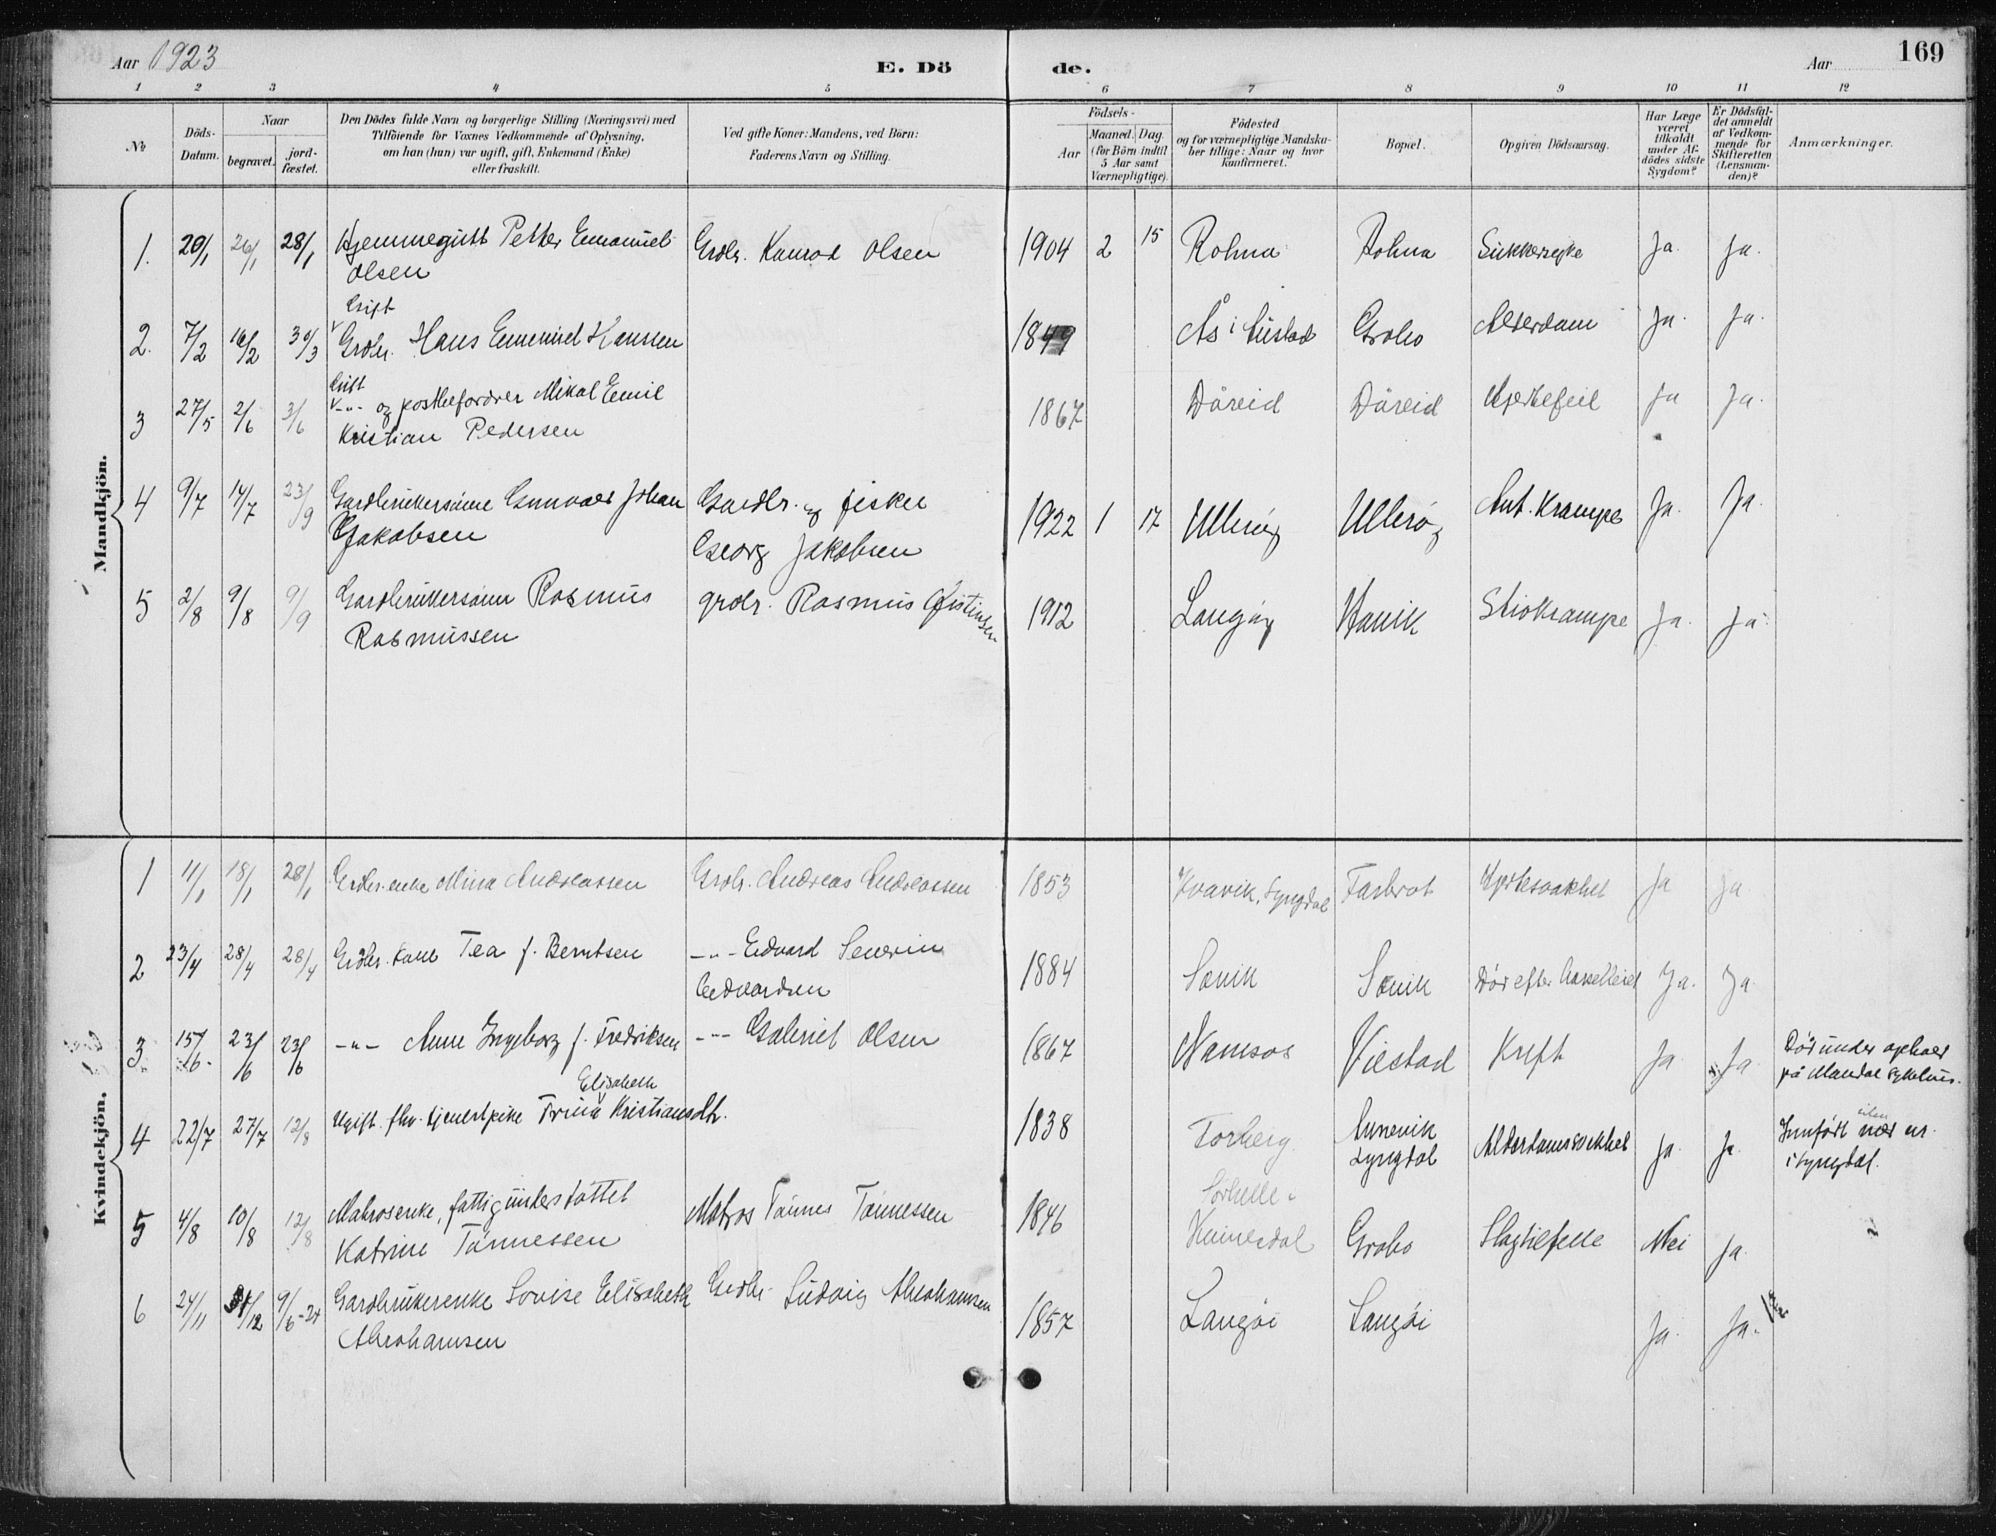 Aar 1923
E. Dö
de.
Aar
169
1 2 3 4 5 6 7 8 9 10 11 12
No
Döds-Datum.
Naar
begravet.
jord-fæstet.
Den Dödes fulde Navn og borgerlige Stilling (Næringsvei) med
Tilföiende for Voxnes Vedkommende af Oplysning,
om han (hun) var ugift, gift, Enkemand (Enke)
eller fraskilt.
Ved gifte Koner: Mandens, ved Börn:
Faderens Navn og Stilling.
Födsels-
Aar
Maaned. Dag.
(for Börn indtil
5 Aar samt
Værnepligtige).
Födested
og for værnepligtige Mandska-
ber tillige: Naar og hvor
konfirmeret.
Bopæl.
Opgiven Dödsaarsag.
Har Læge
været
tilkaldt
under Af-
dödes sidste
Sygdom?
Er Dödsfal-
det anmeldt
af Vedkom-
mende for
Skifteretten
(Lensman-
den)?
Anmærkninger.
Mandkjön.
1. 20/1 26/1 28/1 Hjemmegutt Petter Emanuel Grdbr. Konrad Olsen 1904 2 15 Rohna Rohna Sukkersyke Ja. Ja.
Olsen
Gift
2. 7/2 16/2 30/3 Grdbr. Hans Emanuel Hanssen 1849 Ås i Austad Grobo Alderdom Ja. Ja.
Gift
3 27/5 2/6 3/6 -"- og postbefordrer Mikal Emil 1867 Dåreid Dåreid Hjertefeil Ja Ja.
Kristian Pedersen
4 9/7 14/7 23/9 Gardbrukersönn Gunvald Johan Gardbr. og fisker 1922 1 17 Ulleröy Ulleröy Ant. Krampe Ja. Ja.
Jakobsen Georg Jakobsen
5 2/8 9/8 9/9 Gardbrukersönn Rasmus grdbr. Rasmus 1912 Langöy Havik Ja. Ja.
Rasmussen
Kvindekjön.
1 11/1 18/1 28/1 Grdbr.enke Mina Andreassen Grdbr. Andreas Andreassen 1853 Kvavik, Lyngdal Farbrot Ja Ja
2 23/4 28/4 28/4 Grdbr. kone Tea f. Berntsen -"- Edvard Severin 1884 Sånik Sånik Död efter Ja. Ja
Edvardsen
3 15/6 23/6 23/6 -"- Anne Ingeborg f. Fredriksen -"- Gabriel Olsen 1867 Namsos Viestad Kreft Ja Ja Död under ophold
på Mandal sykehus.
Elisabeth
4 22/7 27/7 12/8 Ugift. fhv. tjenestpike Trine Kristiansdtr. 1838 Torberg Annevik Alderdomssvakhet Ja Ja. Innfört
Lyngdal i Lyngdal.
5 4/8 10/8 12/8 Matrosenke, fattigunderstöttet Matros Tönnes Tönnessen 1846 Grobo Slagtilfelle Nei Ja
Katrine Tönnessen
6 24/11 /12 9/6-24 Gardbrukerenke Lovise Elisabeth Grdbr. Ludvig Abrahamsen 1857 Langöi Langöi Ja. Ja.
Abrahamsen